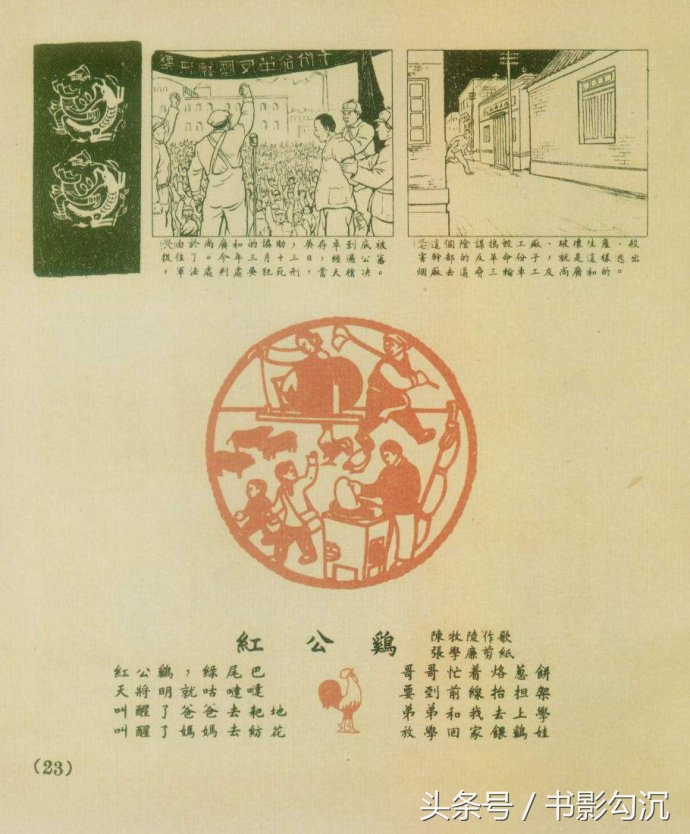 由於尚廣和的協助，吳存卓到威被
捉住了。今年三月十三日，經過公審。
軍法處判處吳犯死刑，當天槍決。
這個陰謀搗毀工廠、破壞生產、殺
害幹部的反革命份子，就是這樣
廠去逼脅三輪車工友尚廣和的
紅公鷄
陳牧陵作歌
張學廉剪紙
紅公鷄，綠尾巴
天將明就咕噠噠
叫醒了爸爸去耙地
叫醒了媽媽去紡花
哥哥忙着烙葱餅
要到前線抬担架
弟弟和我去上學
放學回家餵鷄娃
(23)
头条号 / 书影勾沉